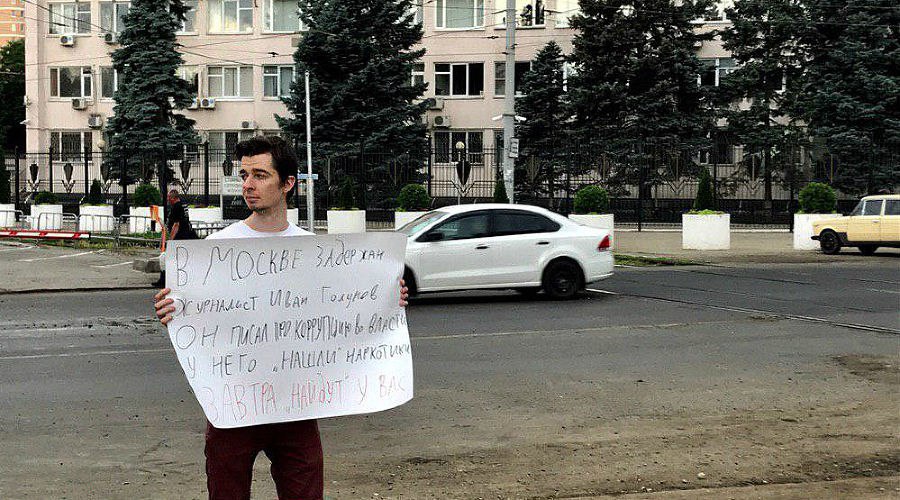 В МОСКВЕ ЗАДЕРЖАН
ЖУРНАЛИСТ ИВАН ГОЛУНОВ
ОН ПИСАЛ ПРО КОРРУПЦИЮ ВО ВЛАСТИ
У НЕГО „НАШЛИ" НАРКОТИКИ
ЗАВТРА „НАЙДУТ" У ВАС